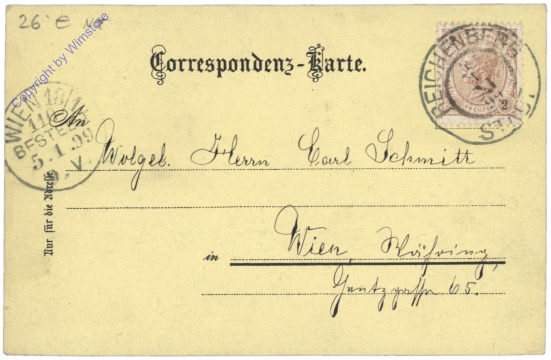 26 €
Copyright by Wimstore
Correspondenz-Karte.
REICHENBERG STADT
2 KREUZER
WIEN 18/1
BESTELLT
5.1.99
An
Wolgeb. Herrn Carl Schmitt
Nur für die Adresse
in Wien, Währing,
Gentzgasse 65.